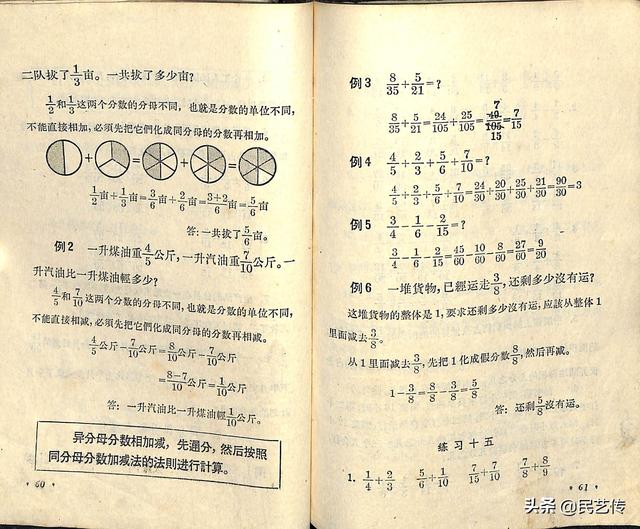 二队拔了1/3亩。一共拔了多少亩?
1/2和1/3这两个分数的分母不同，也就是分数的单位不同，
不能直接相加，必须先把它們化成同分母的分数再相加。
+ = + =
1/2亩+1/3亩=3/6亩+2/6亩=3+2/6亩=5/6亩
答:一共拔了5/6亩。
例2 一升煤油重4/5公斤，一升汽油重7/10公斤。一
升汽油比一升煤油輕多少?
4/5和7/10这两个分数的分母不同，也就是分数的单位不同，
不能直接相减，必须先把它們化成同分母的分数再相减。
4/5公斤-7/10公斤=8/10公斤-7/10公斤
=8-7/10公斤=1/10公斤
答: 一升汽油比一升煤油輕1/10公斤。
异分母分数相加减，先通分，然后按照
同分母分数加减法的法則进行計算。
· 60 ·
例3 8/35+5/21=?
8/35+5/21=24/105+25/105=49/105=7/15
例4 4/5+2/3+5/6+7/10=?
4/5+2/3+5/6+7/10=24/30+20/30+25/30+21/30=90/30=3
例5 3/4-1/6-2/15=?
3/4-1/6-2/15=45/60-10/60-8/60=27/60=9/20
例6 一堆貨物，已經运走3/8，还剩多少沒有运?
这堆貨物的整体是1，要求还剩多少沒有运，应該从整体1
里面减去3/8。
从1里面减去3/8，先把1化成假分数8/8，然后再减。
1-3/8=8/8-3/8=5/8
答: 还剩5/8沒有运。
练习十五
1. 1/4+2/3 5/6+1/10 7/15+7/10 7/8+8/9
· 61 ·
头条 @民艺传